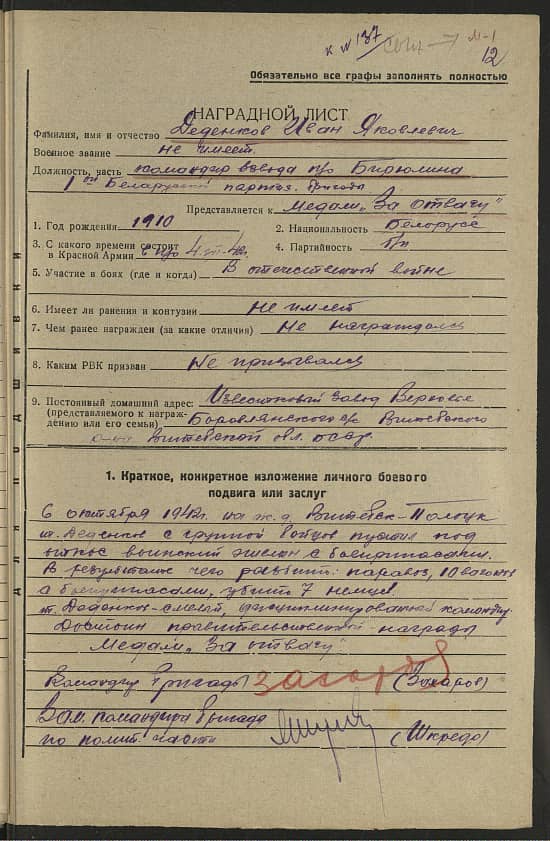 к № 137
12
Обязательно все графы заполнять полностью
НАГРАДНОЙ ЛИСТ
Фамилия, имя и отчество Деденков Иван Яковлевич
Военное звание не имеет.
Должность, часть командир взвода п/о Бирюлина
1ой Белорусской партиз. бригады
Представляется к Медали „За отвагу"
1. Год рождения 1910 2. Национальность Белорус
3. С какого времени состоит в Красной Армии в п/о 4. Партийность б/п
5. Участие в боях (где и когда) В отечественной войне
6. Имеет ли ранения и контузии Не имеет
7. Чем ранее награжден (за какие отличия) Не награждался
8. Каким РВК призван Не призывался
9. Постоянный домашний адрес: Известковый завод
(представляемого к награждению или его семьи) Витебского
р-на Витебской обл. БССР.
1. Краткое, конкретное изложение личного боевого
подвига или заслуг
6 октября 1942г. на ж.д. Витебск-Полоцк
т. Деденков с группой бойцов пустил под
откос воинский эшелон с боеприпасами.
В результате чего разбит: паровоз, 10 вагонов
с боеприпасами, убит 7 немцев.
т. Деденков-смелый, дисциплинированный командир.
Достоин правительственной награды
Медали „За отвагу"
Командир бригады (Захаров)
Зам. командира бригады
по полит. части (Шкредо)
Для подшивки